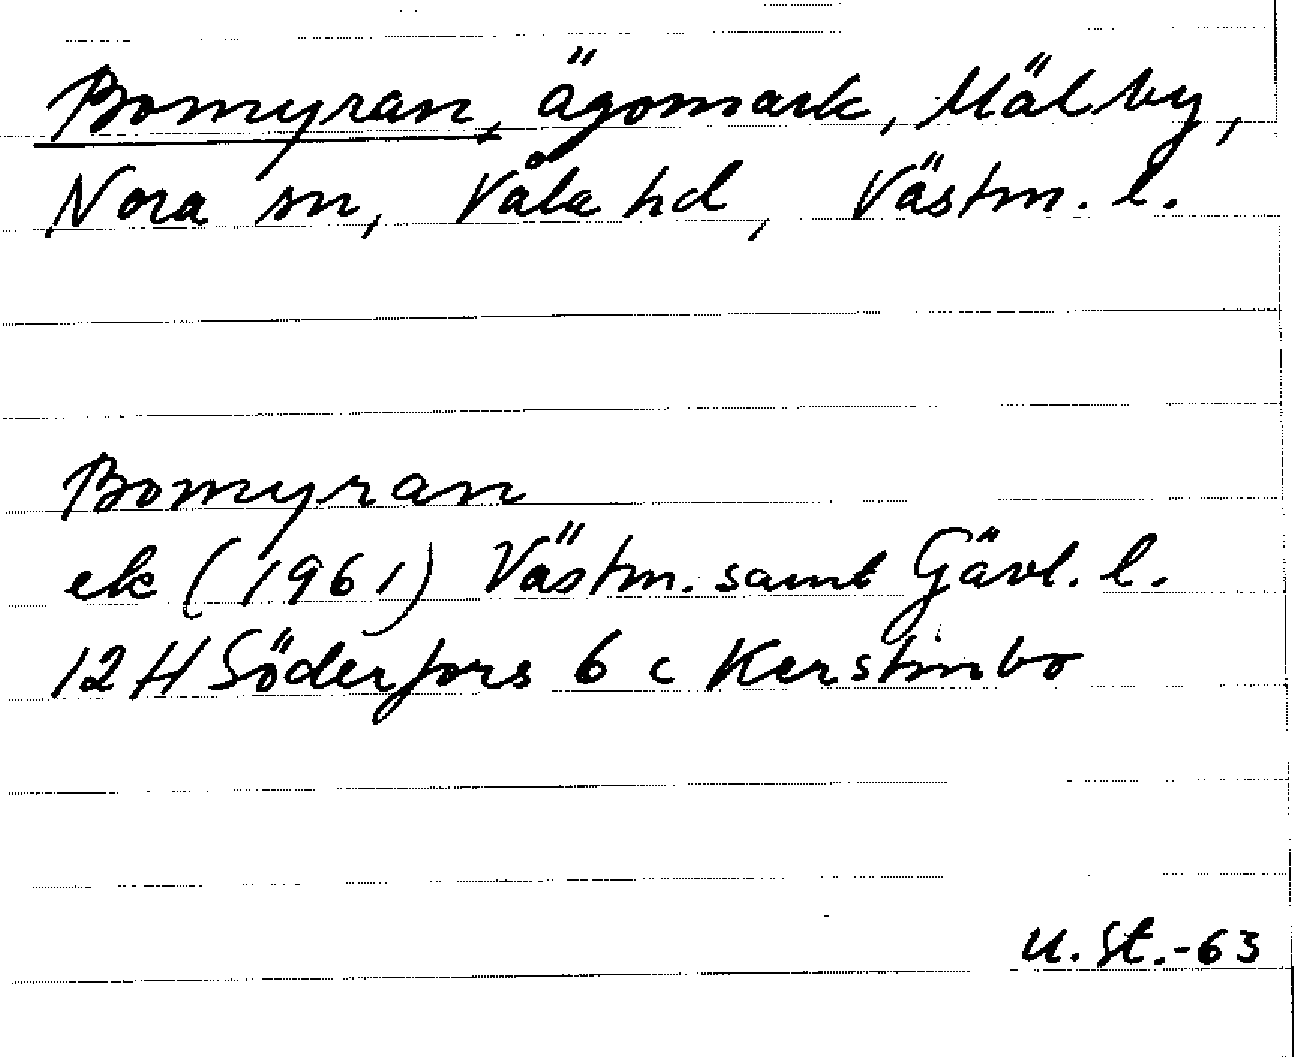 Bomyran, ägomark, Mälby,
Nora sn, Våla hd, Västm. l.
Bomyran
ek (1961) Västm. samt Gävl. l.
12 H Söderfors 6 c Kerstinbo
U. St.-63